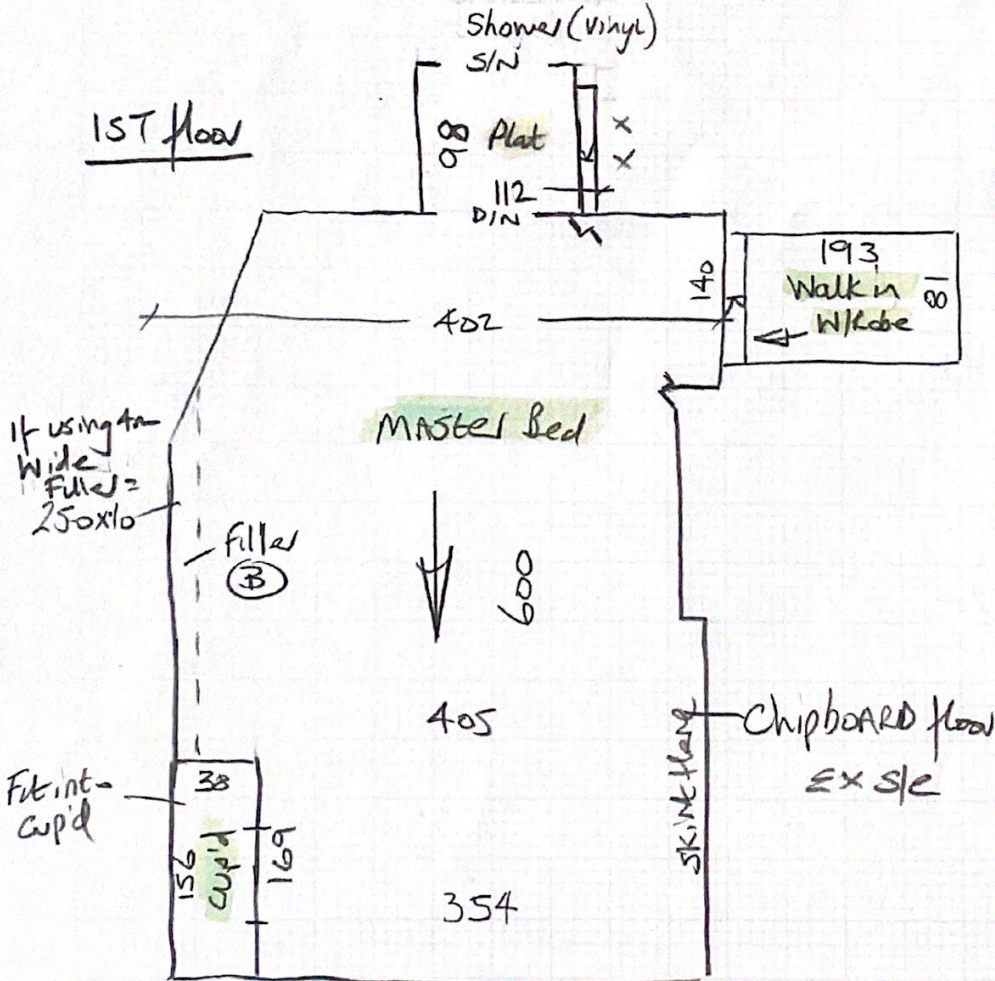 Shower (Vinyl)
S/N
1ST floor
98
Plat
X
X
112
D/N
193
Walk in
W/Robe
81
140
402
Master Bed
If using 4m
Wide
Filler =
250x10
filler
B
600
405
Chipboard floor
Ex S/e
Skirt
38
Fit int-
cup'd
156
Cup'd
169
354